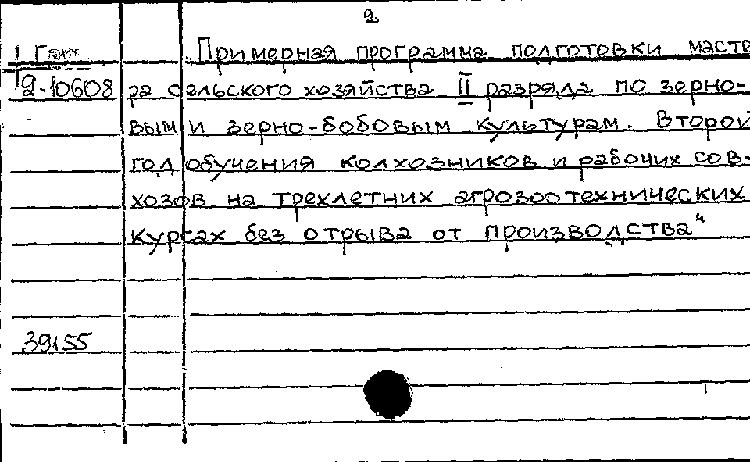 2
Примерная программа подготовки масте
2-10608 ра сельского хозяйства II разряда по зерно-
вым и зерно-бобовым культурам. Второй
год обучения колхозников и рабочих сов-
хозов на трехлетних агрозоотехнических
курсах без отрыва от производства"
39155